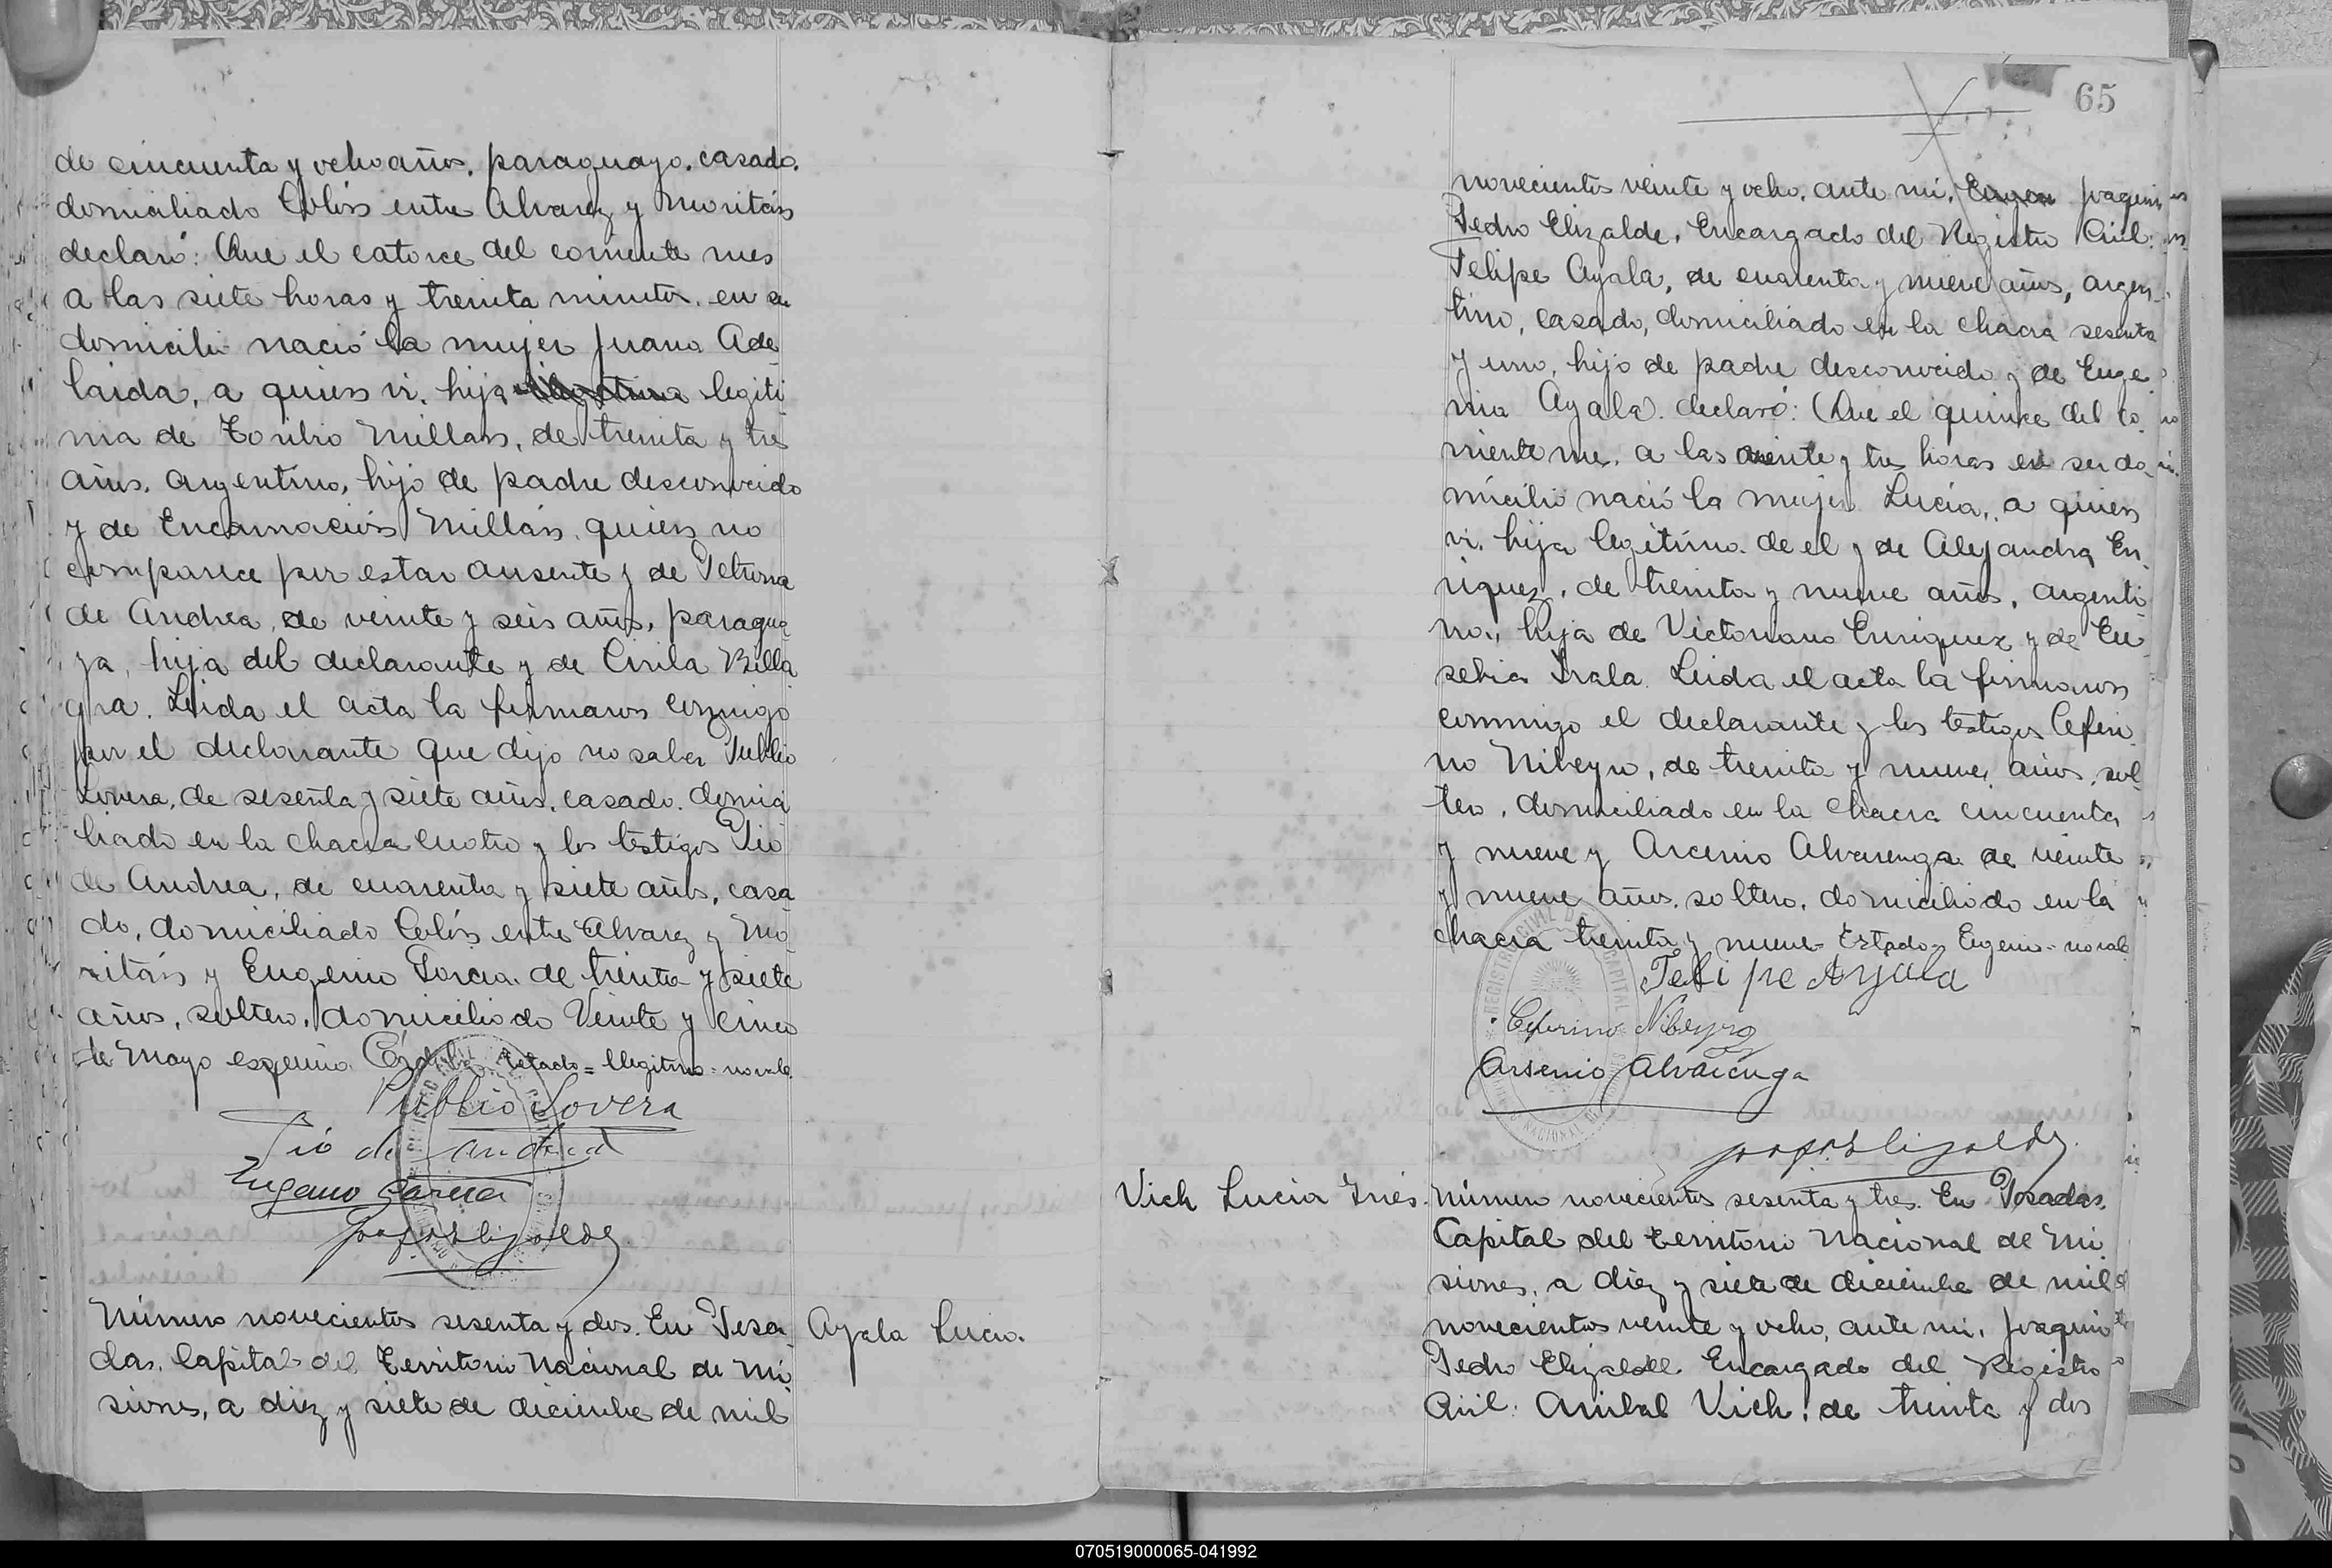 de cincuenta y ocho años, paraguayo, casado,
domiciliado Colón entre Alvarez y Moritán
declaró: Que el catorce del corriente mes
a las siete horas y treinta minutos, en su
domicilio nació la mujer Juana Ade
laida, a quien vi, hija legiti
ma de Toribio Millan, de treinta y tres
años, argentino, hijo de padre desconocido
y de Encarnación Millán, quien no
comparece por estar ausente y de Petrona
de Andrea, de veinte y seis años, paragua
ya, hija del declarante y de Cirila Billa
gra. Leida el acta la firmaron conmigo
por el declarante que dijo no saber Publio
Lovera, de sesenta y siete años, casado, domici
liado en la chacra cuatro y los testigos Pio
de Andrea, de cuarenta y siete años, casa
do, domiciliado Colón entre Alvarez y Mo
ritán y Eugenio Garcia, de treinta y siete
años, soltero, domiciliado Veinte y cinco
de Mayo esquina Córdoba. Testado = Ilegitima = no vale.
Publio Lovera
Pio de Andrea
Eugenio Garcia
Número novecientos sesenta y dos. En Posa
das, Capital del Territorio Nacional de Mi
siones, a diez y siete de diciembre de mil
Ayala Lucia.
65
novecientos veinte y ocho, ante mi, Joaquin
Pedro Elizalde, Encargado del Registro Civil:
Felipe Ayala, de cuarenta y nueve años, argen
tino, casado, domiciliado en la chacra sesenta
y uno, hijo de padre desconocido y de Euge
nia Ayala, declaró: Que el quince del co
rriente mes, a las veinte y tres horas en su do
micilio nació la mujer Lucia, a quien
vi, hija legitima de el y de Alejandra En
riquez, de treinta y nueve años, argenti
na, hija de Victoriano Enriquez y de Eu
sebia Irala. Leida el acta la firmaron
conmigo el declarante y los testigos Ceferi
no Nibeyro, de treinta y nueve años, sol
tero, domiciliado en la chacra cincuenta
y nueve y Arcenio Alvarenga de veinte
y nueve años, soltero, domiciliado en la
chacra treinta y nueve = Testado = Eugenio = no vale
Felipe Ayala
Ceferino Nibeyro
Arsenio Alvarenga
Vich Lucia Inés.
Número novecientos sesenta y tres. En Posadas,
Capital del Territorio Nacional de Mi
siones, a diez y siete de diciembre de mil
novecientos veinte y ocho, ante mi, Joaquin
Pedro Elizalde, Encargado del Registro
Civil: Anibal Vich, de treinta y dos
070519000065-041992